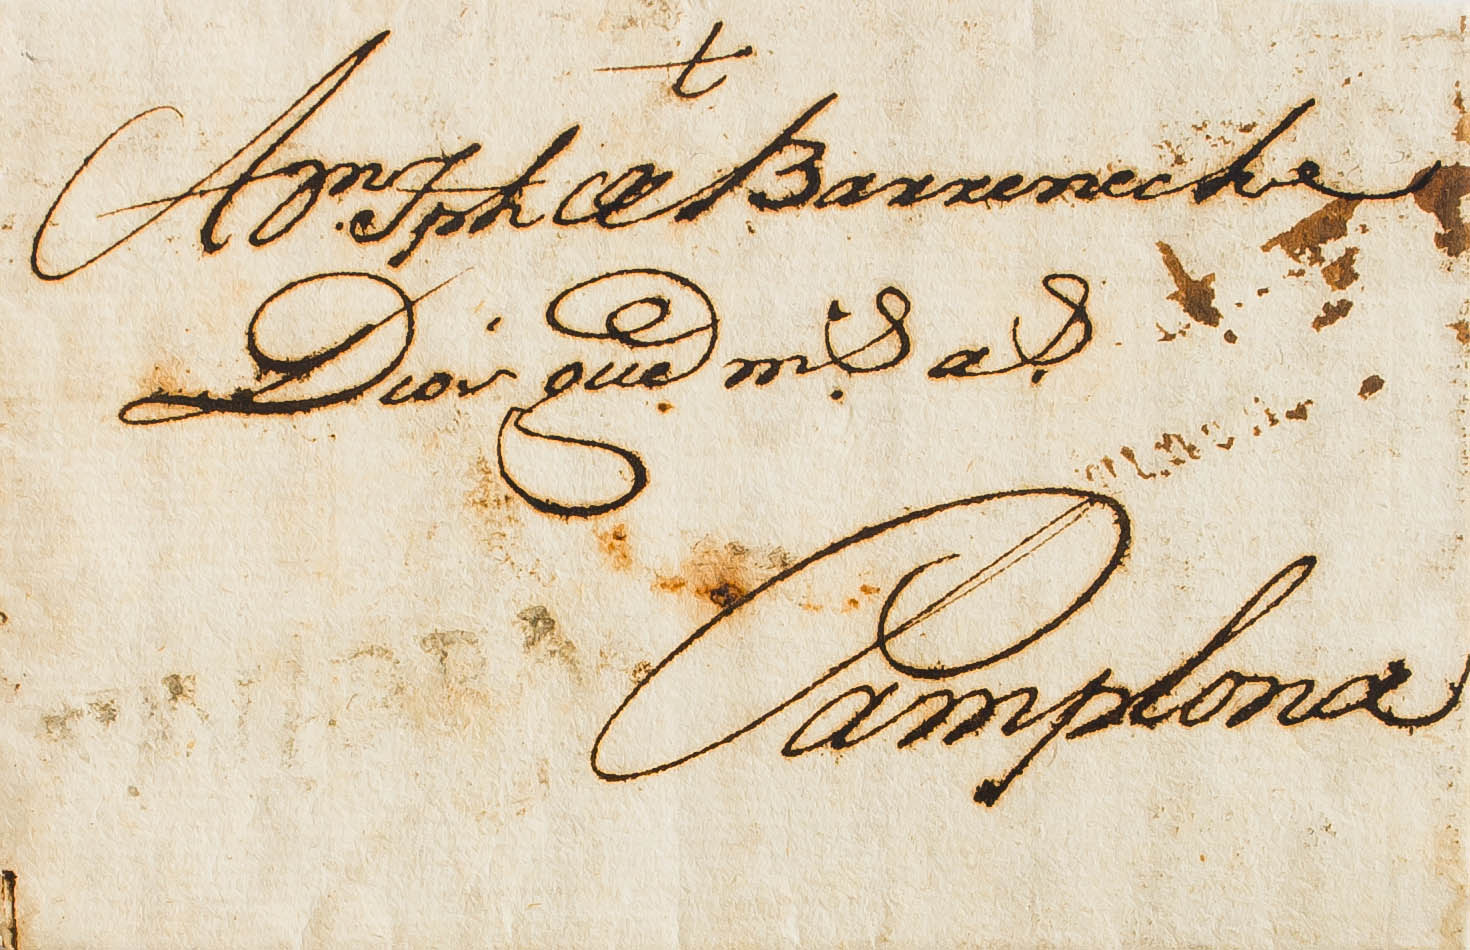 +
A Mn. Jph de Barreneche
Dios gue. m.s a.s
Pamplona